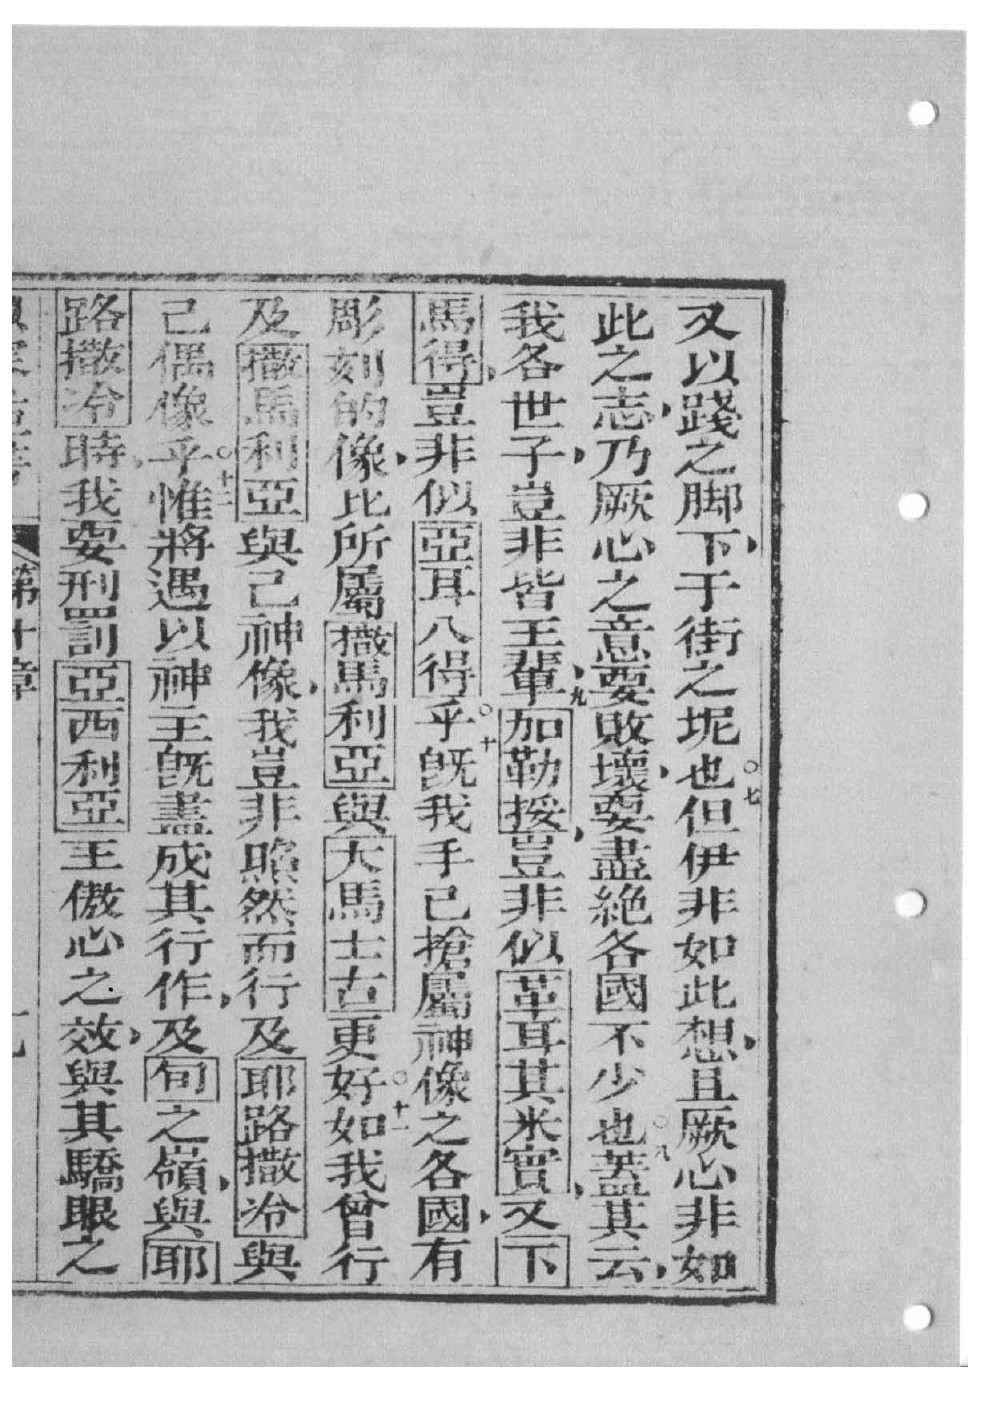 又以踐之脚下于街之坭也○七但伊非如此想且厥心非如
此之志乃厥心之意要敗壞要盡絕各國不少也○八蓋其云
我各世子豈非皆王輩九加勒挼豈非似革耳其米實又下
馬得豈非似亞耳八得乎○十旣我手已搶屬神像之各國有
彫刻的像比所屬撒馬利亞與大馬士古更好○十一如我曾行
及撒馬利亞與己神像我豈非照然而行及耶路撒冷與
己偶像乎○十二惟將遇以神主旣盡成其行作及旬之嶺與耶
路撒冷時我要刑罰亞西利亞王傲心之效與其驕眼之
第十章